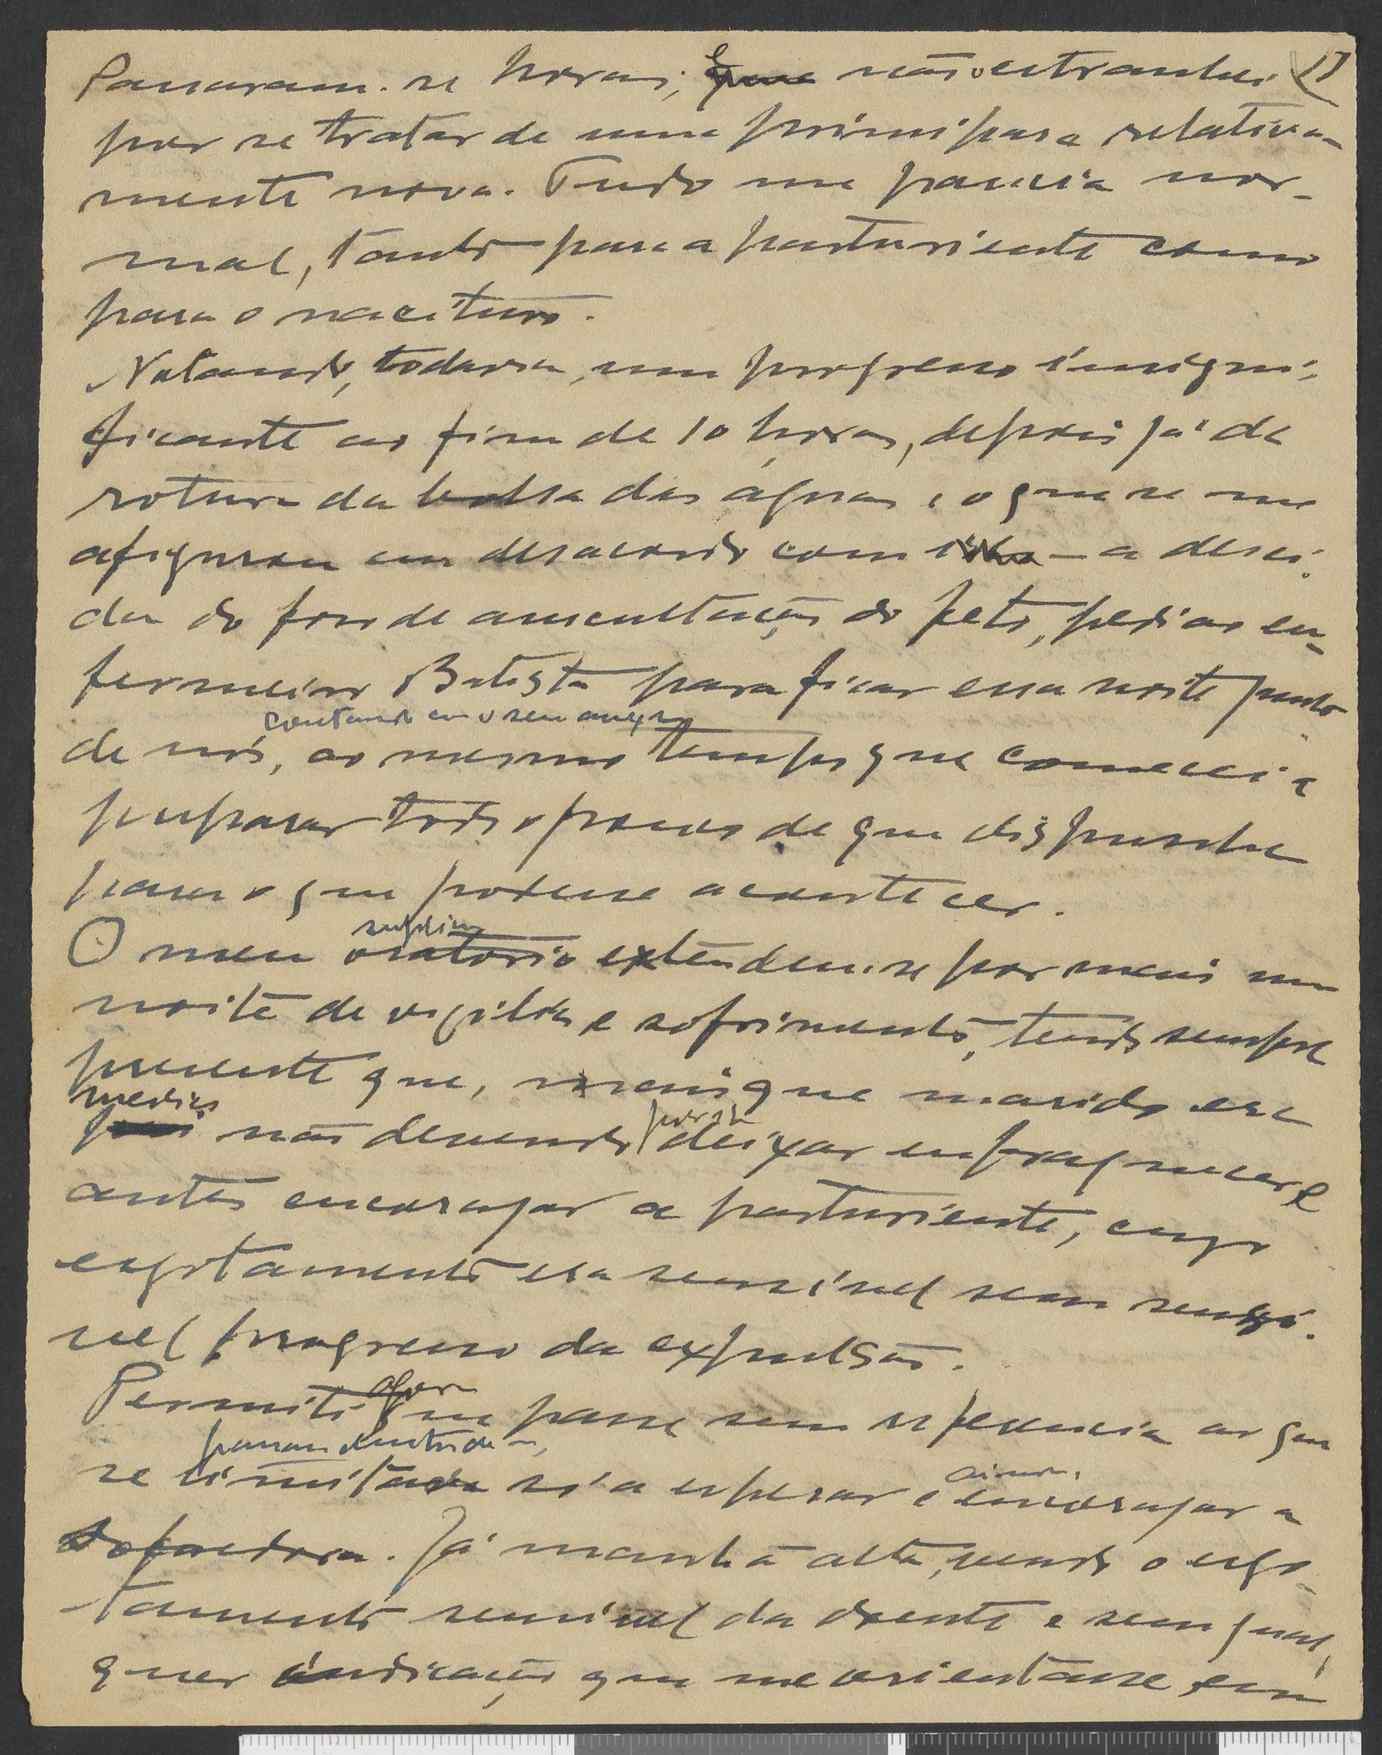 Passaram-se horas; e não estranhei 17
por se tratar de uma primipara relativa-
mente nova. Tudo me parecia nor-
mal, tanto para a parturiente como
para o nacituro.
Notando, todavia, um progresso insigni-
ficante ao fim de 10 horas, depois já da
rotura da bolsa das águas, e o que se me
afigurou em desacordo com isso – a desci-
da do foco de auscultação do feto, pedi ao en-
fermeiro Batista para ficar essa noite junto
contando com o seu auxílio
de nós, ao mesmo tempo que comecei a
preparar todo o pouco de que dispunha
para o que podesse acontecer.
suplício
O meu oratorio extendeu-se por mais uma
noite de vigília e sofrimento, tendo sempre
presente que, mais que marido era
medico
pai não devendo deixar enfraquecer e
antes encorajar a parturiente, cujo
esgotamento era sensivel sem sensi-
vel progresso da expulsão.
agora
Permiti que passe sem referencia ao que
se limitava só a esperar e encorajar a
ainda
sofredora. Já manhã alta, vendo o esgo-
tamento sensivel da doente e sem qual-
quer indicação que me orientasse em